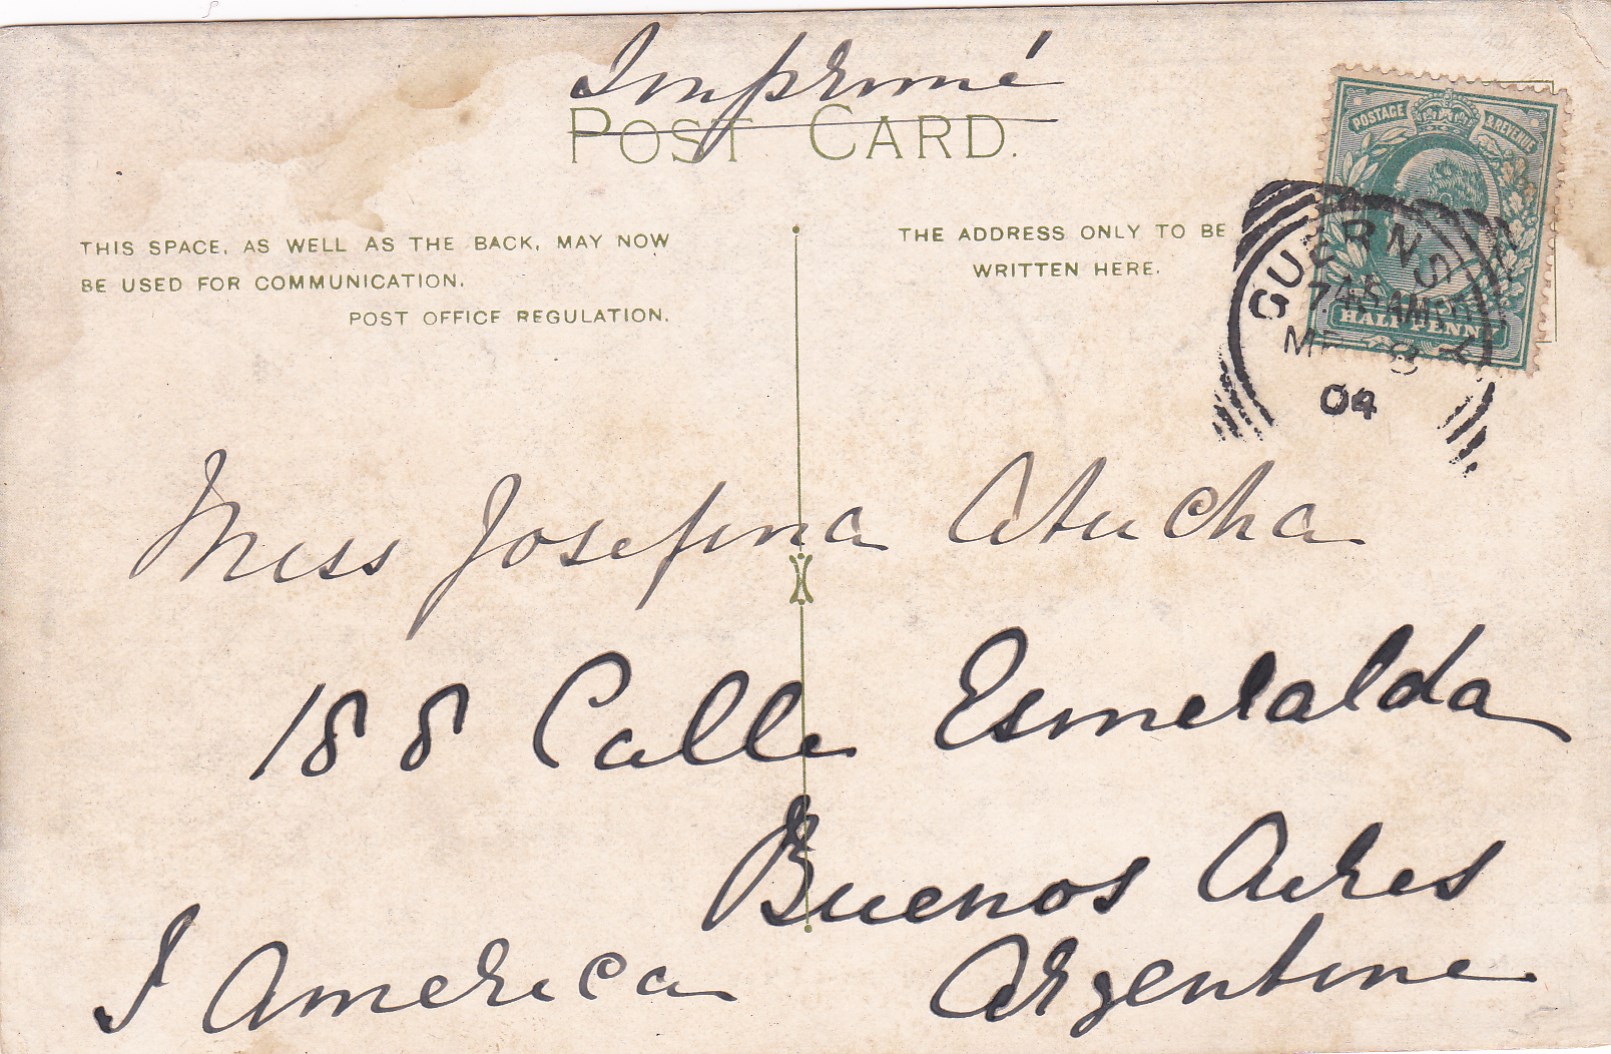 Imprimé
POST CARD.
THIS SPACE, AS WELL AS THE BACK, MAY NOW
BE USED FOR COMMUNICATION.
POST OFFICE REGULATION.
THE ADDRESS ONLY TO BE
WRITTEN HERE.
POSTAGE & REVENUE
HALFPENNY
GUERNS
04
Miss Josefina Atucha
188 Calle Esmeralda
Buenos Aires
S America Argentine